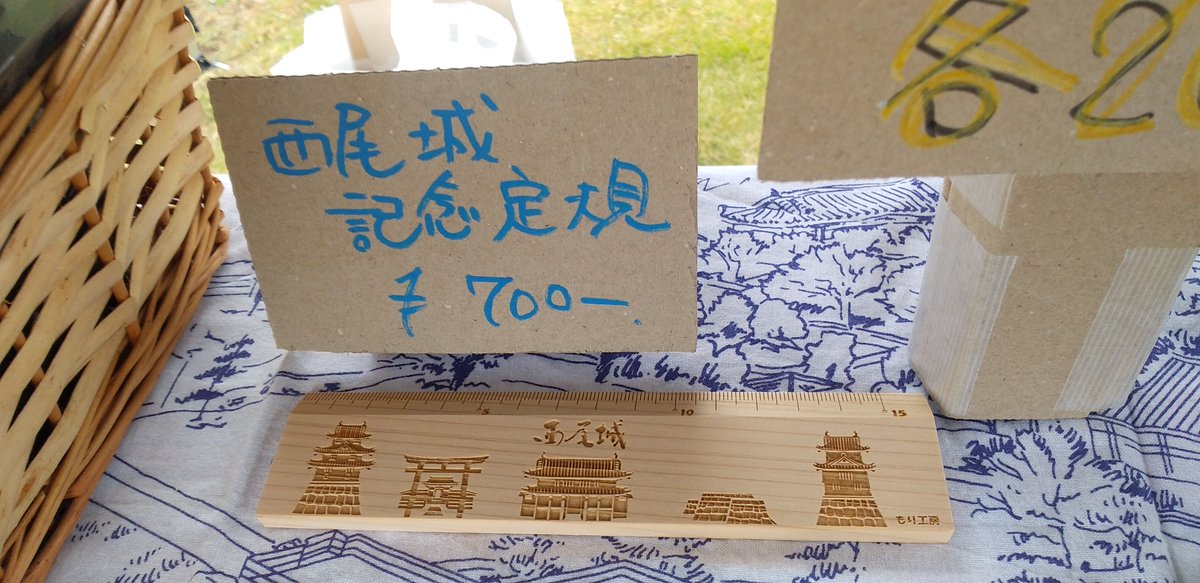 西尾城
記念定規
¥ 700ー.
各 20
5 10 15
西尾城
もり工房